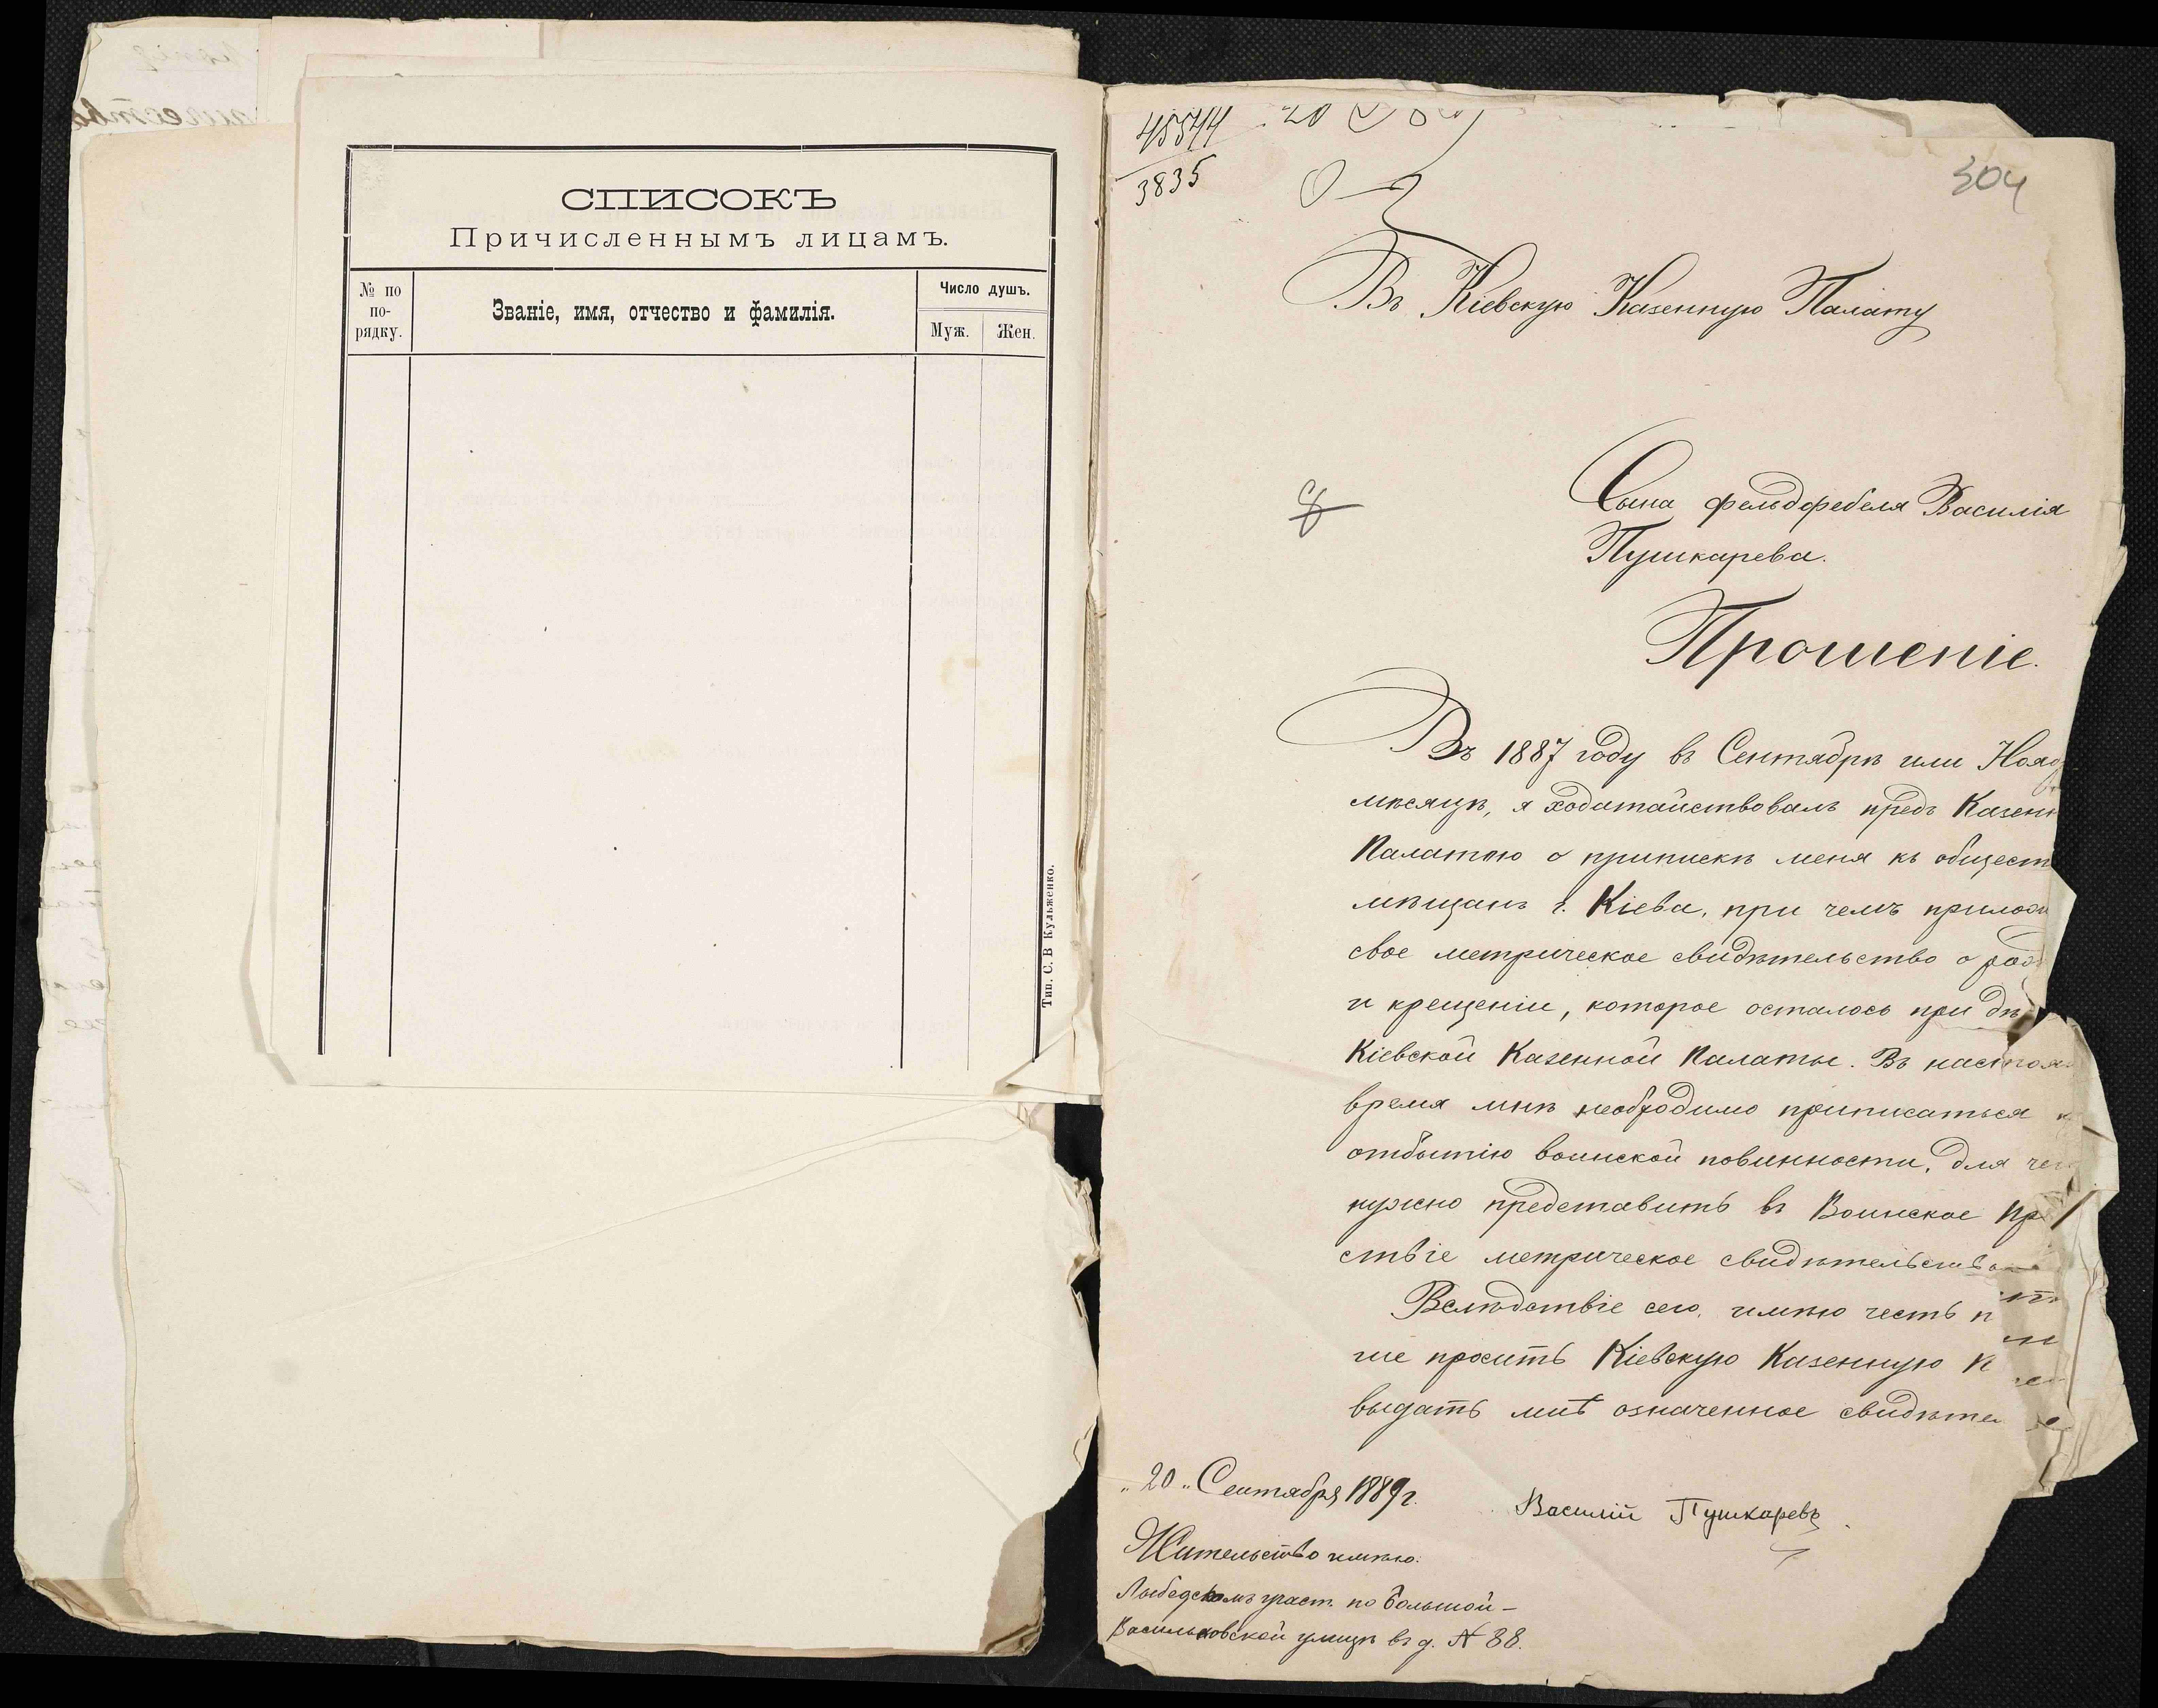 СПИСОКЪ
Причисленнымъ лицамъ.
№ по
по-
рядку.
Званіе, имя, отчество и фамилія.
Число душъ.
Муж.
Жен.
Тип. С. В Кульженко.
45544
3835
20
304
Въ Кіевскую Казенную Палату
Сына фельдфебеля Василія
Пушкарева.
Прошеніе.
Въ 1887 году въ Сентябрѣ или Нояб
мѣсяцѣ, я ходатайствовалъ предъ Казен
Палатою о припискѣ меня къ общест
мѣщанъ г. Кіева, при чемъ прилож
свое метрическое свидѣтельство о рож
и крещеніи, которое осталось при дѣ
Кіевской Казенной Палаты. Въ настоя
время мнѣ необходимо приписаться к
отбытію воинской повинности, для чег
нужно представить въ Воинское Пр
ствіе метрическое свидѣтельство
Вслѣдствіе сего, имѣю честь п
ше просить Кіевскую Казенную П
выдать мнѣ означенное свидѣте
„20„ Сентября 1889 г.
Василій Пушкаревъ
Жительство имѣю:
Лыбедскомъ участ. по Большой-
Васильковской улицѣ въ д. № 88.